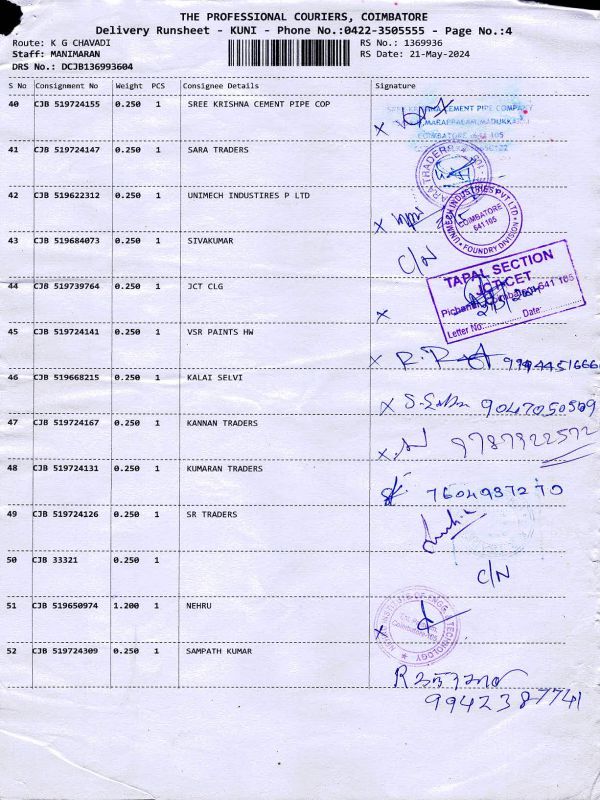 THE PROFESSIONAL COURIERS, COIMBATORE
Delivery Runsheet - KUNI - Phone No.:0422-3505555 - Page No.:4
Route: K G CHAVADI RS No.: 1369936
Staff: MANIMARAN RS Date: 21-May-2024
DRS No.: DCJB136993604
S No Consignment No Weight PCS Consignee Details Signature
40 CJB 519724155 0.250 1 SREE KRISHNA CEMENT PIPE COP
KRISHNA CEMENT PIPE COMPANY
MARAPPALAM, MADUKKARAI
COIMBATORE 641 105
41 CJB 519724147 0.250 1 SARA TRADERS
SARA TRADERS
42 CJB 519622312 0.250 1 UNIMECH INDUSTIRES P LTD
UNIMECH INDUSTRIES PVT LTD
COIMBATORE
641105
FOUNDRY DIVISION
43 CJB 519684073 0.250 1 SIVAKUMAR C/N
44 CJB 519739764 0.250 1 JCT CLG
TAPAL SECTION
JCTCET
Coimbatore-641 105
Letter No: Date:
45 CJB 519724141 0.250 1 VSR PAINTS HW
46 CJB 519668215 0.250 1 KALAI SELVI 9047050509
47 CJB 519724167 0.250 1 KANNAN TRADERS 9787922572
48 CJB 519724131 0.250 1 KUMARAN TRADERS 7604937270
49 CJB 519724126 0.250 1 SR TRADERS
50 CJB 33321 0.250 1 C/N
51 CJB 519650974 1.200 1 NEHRU
INSTITUTE OF ENGG TECHNOLOGY
Coimbatore-105
52 CJB 519724309 0.250 1 SAMPATH KUMAR
9942387741